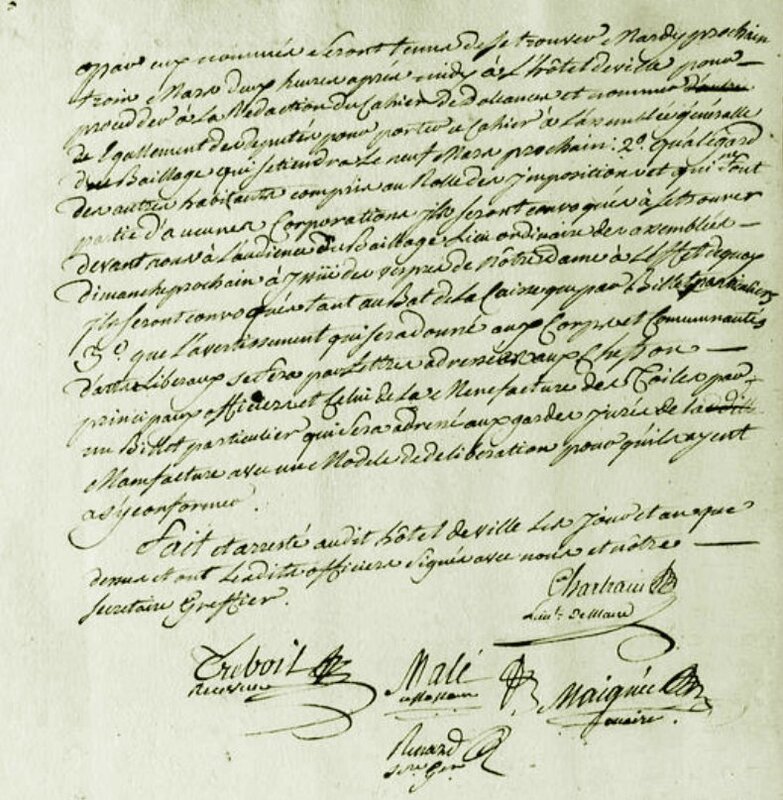 par eux nommés seront tenus de se trouver Mardy prochain
trois Mars deux heures après midy à L'hôtel de ville pour
proceder à La Redaction du Cahier de doleances et nommer
de Egallement des deputés pour porter Cahier à L'assemblée généralle
du Baillage qui se tiendra Le neuf Mars prochain: 2º. qu'a l'égard
des autres habitants compris au Rolle des Jmpositions et qui ne font
partie d'aucunes Corporations Jls seront convoqués à se trouver
devant nous à L'audience du Baillage Lieu ordinaire des assemblées
dimanche prochain à des vespres de Nôtre dame à L'effet de quoy
Jls seront convoqués tant au Bat de La Caisse que par Billets particuliers
3º. que L'avertissement qui sera donné aux Corps et Communautés
d'arts Liberaux se fera par Lettres adressées aux Chefs ou
principaux officiers et Celui de la Menefacture des Toiles par
un Billet particulier qui sera adressé aux gardes Jurés de la
Manufacture avec un Modele de deliberation pour qu'ils ayent
a s'y conformer.
Fait et arresté audit hôtel de ville Les Jour et an que
dessus et ont Lesdits officiers signés avec nous et nôtre
Secretaire Greffier.
Chartrain
Lieut. De Maire
Treboil
Receveur
Malé
Maignée
Renard